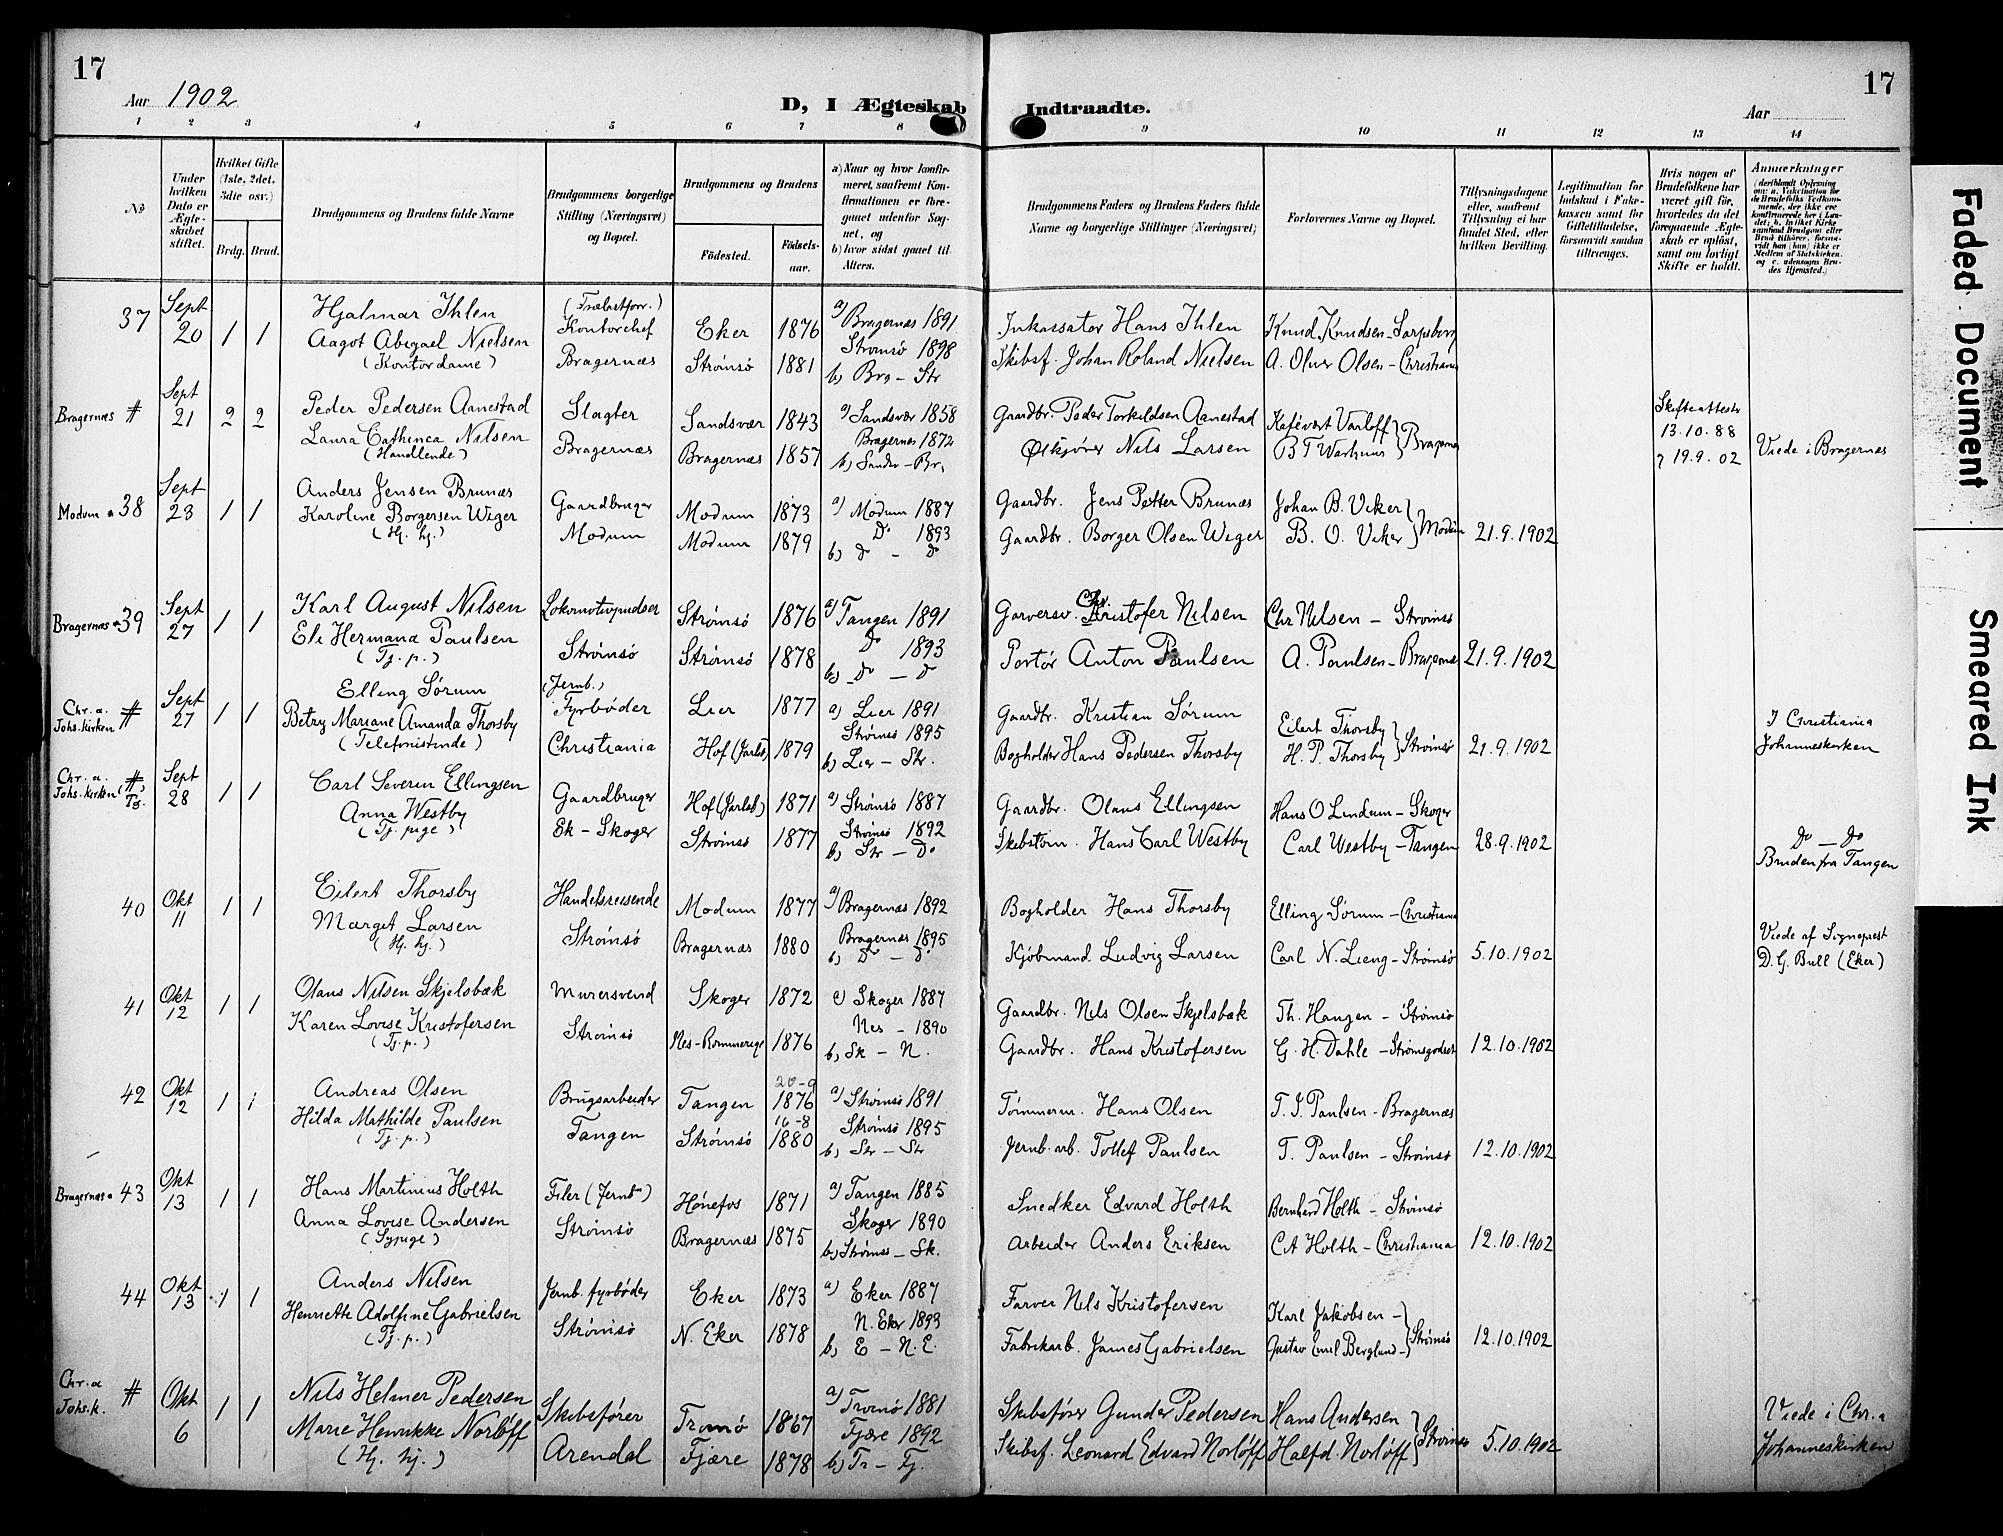 17
17
Aar 1902
D, I Ægteskab Indtraadte.
Aar
1 2 3 4 5 6 7 8 9 10 11 12 13 14
№
Under hvilken Dato er Ægteskabet stiftet.
Hvilket Gifte (1ste, 2det, 3dte osv.)
Brdg. Brud.
Brudgommens og Brudens fulde Navne
Brudgommens borgerlige Stilling (Næringsvei) og Bopæl.
Brudgommens og Brudens
Fødested. Fødselsaar.
a) Naar og hvor konfirmeret, saafremt Konfirmationen er foregaaet udenfor Sognet, og
b) hvor sidst gaaet til Alters.
Brudgommens Faders og Brudens Faders fulde Navne og borgerlige Stillinger (Næringsvei)
Forlovernes Navne og Bopæl.
Tillysningsdagene eller, saafremt Tillysning ei har fundet Sted, efter hvilken Bevilling.
Legitimation for Indskud i Enkekassen samt for Giftetilladelse, forsaavidt saadan tiltrænges.
Hvis nogen af Brudefolkene har været gift før, hvorledes da det foregaaende Ægteskab er opløst, samt om lovligt Skifte er holdt.
Anmerkninger
37 Sept 20 1 1 Hjalmar Ihlen (Trælastforr.) Kontorchef Eker 1876 a) Bragernæs 1891 Inkassator Hans Ihlen Knud Knudsen - Sarpsborg
Aagot Abigael Nielsen (Kontordame) Bragernæs Strømsö 1881 Strømsö 1898 b) Brg - Str Skibsf. Johan Roland Nielsen A. Oluv Olsen - Christiania
Bragernæs # Sept 21 2 2 Peder Pedersen Aanestad Slagter Sandsvær 1843 a) Sandsvær 1858 Gaardbr. Peder Torkildsen Aanestad Kafévert Varloff Skifteattester 13.10.88
Laura Cathinca Nilsen (Handlende) Bragernæs Bragernæs 1857 Bragernæs 1872 b) Sandsv - Br. Ølkjører Nils Larsen B T Warhuus } Bragernæs 19.9.02 Viede i Bragernæs
Modum a 38 Sept 23 1 1 Anders Jensen Brunæs Gaardbruger Modum 1873 a) Modum 1887 Gaardbr. Jens Petter Brunæs Johan B. Viker
Karoline Borgersen Wiger (Hj. hj.) Modum Modum 1879 Do 1893 b) Do - Do Gaardbr. Borger Olsen Wiger B. O. Viker } Modum 21.9.1902
Bragernæs a 39 Sept 27 1 1 Karl August Nilsen Lokomotivpudser Strømsö 1876 a) Tangen 1891 Garversv. Christofer Nilsen Chr Nilsen - Strømsö
Eli Hermana Paulsen (Tj. p.) Strømsö Strømsö 1878 Do 1893 b) Do - Do Portør Anton Paulsen A. Paulsen - Bragernæs 21.9.1902
Chr. a. Johs. kirken # Sept 27 1 1 Elling Sørum (Jernb.) Fyrbøder Lier 1877 a) Lier 1891 Gaardbr. Kristian Sørum Eilert Thorsby I Christiania
Betzy Mariane Amanda Thorsby (Telefonistinde) Christiania Hof (Jarlsb) 1879 Strømsö 1895 b) Lier - Str. Bogholder Hans Pedersen Thorsby H. P. Thorsby } Strømsö 21.9.1902 Johanneskirken
Chr. a. Johs. kirken (#) Tg. Sept 28 1 1 Carl Severin Ellingsen Gaardbruger Hof (Jarlsb) 1871 a) Strømsö 1887 Gaardbr. Olaus Ellingsen Hans O Lindum - Skoger
Anna Westby (Tj. pige) Ek - Skoger Strømsö 1877 Strømsö 1892 b) Str - Do Skibstøm. Hans Carl Westby Carl Westby - Tangen 28.9.1902 Do - Do Bruden fra Tangen
40 Okt 11 1 1 Eilert Thorsby Handelsreisende Modum 1877 a) Bragernæs 1892 Bogholder Hans Thorsby Elling Sørum - Christiania
Margit Larsen (Hj. hj.) Strømsö Bragernæs 1880 Bragernæs 1895 b) Do - Do Kjøbmand Ludvig Larsen Carl N. Lieng - Strømsö 5.10.1902 Viede af Sogneprest D. G. Bull (Eker)
41 Okt 12 1 1 Olaus Nilsen Skjelsbæk Murersvend Skoger 1872 a) Skoger 1887 Gaardbr. Nils Olsen Skjelsbæk Th. Haugen - Strømsö
Karen Lovise Kristofersen (Tj. p.) Strømsö Nes-Romerige 1876 Nes - 1890 b) Sk - N. Gaardbr. Hans Kristofersen G. H. Dahle - Strømsgodset 12.10.1902
42 Okt 12 1 1 Andreas Olsen Brugsarbeider Tangen 20-9 1876 a) Strømsö 1891 Tømmerm. Hans Olsen T. J. Paulsen - Bragernæs
Hilda Mathilde Paulsen (Tj. p.) Tangen Strømsö 16-8 1880 Strømsö 1895 b) Str - Str Jernb. arb. Tollef Paulsen T. Paulsen - Strømsö 12.10.1902
Bragernæs a 43 Okt 13 1 1 Hans Martinius Holth Filer (Jernb.) Hønefos 1871 a) Tangen 1885 Snedker Edvard Holth Bernhard Holth - Strømsö
Anna Lovise Andersen (Sypige) Strømsö Bragernæs 1875 Skoger 1890 b) Strømsö - Sk. Arbeider Anders Eriksen C A Holth - Christiania 12.10.1902
44 Okt 13 1 1 Anders Nilsen Jernb. fyrbøder Eker 1873 a) Eker 1887 Farver Nils Kristofersen Karl Jakobsen -
Henriette Adolfine Gabrielsen (Tj. p.) Strømsö N. Eker 1878 N. Eker 1893 b) E - N. E. Fabrikarb. James Gabrielsen Gustav Emil Berglund - } Strømsö 12.10.1902
Chr. a Johs. k. # Okt 6 1 1 Nils Helmer Pedersen Skibsfører Tromö 1867 a) Tromö 1881 Skibsfører Gunder Pedersen Hans Andersen Viede i Chr. a
Marie Henrikke Norløff (Hj. hj.) Arendal Fjære 1878 Fjære 1892 b) Tr - Fj. Skibsf. Leonard Edvard Norløff Halfd. Norløff } Strømsö 5.10.1902 Johanneskirken
Faded Document
Smeared Ink